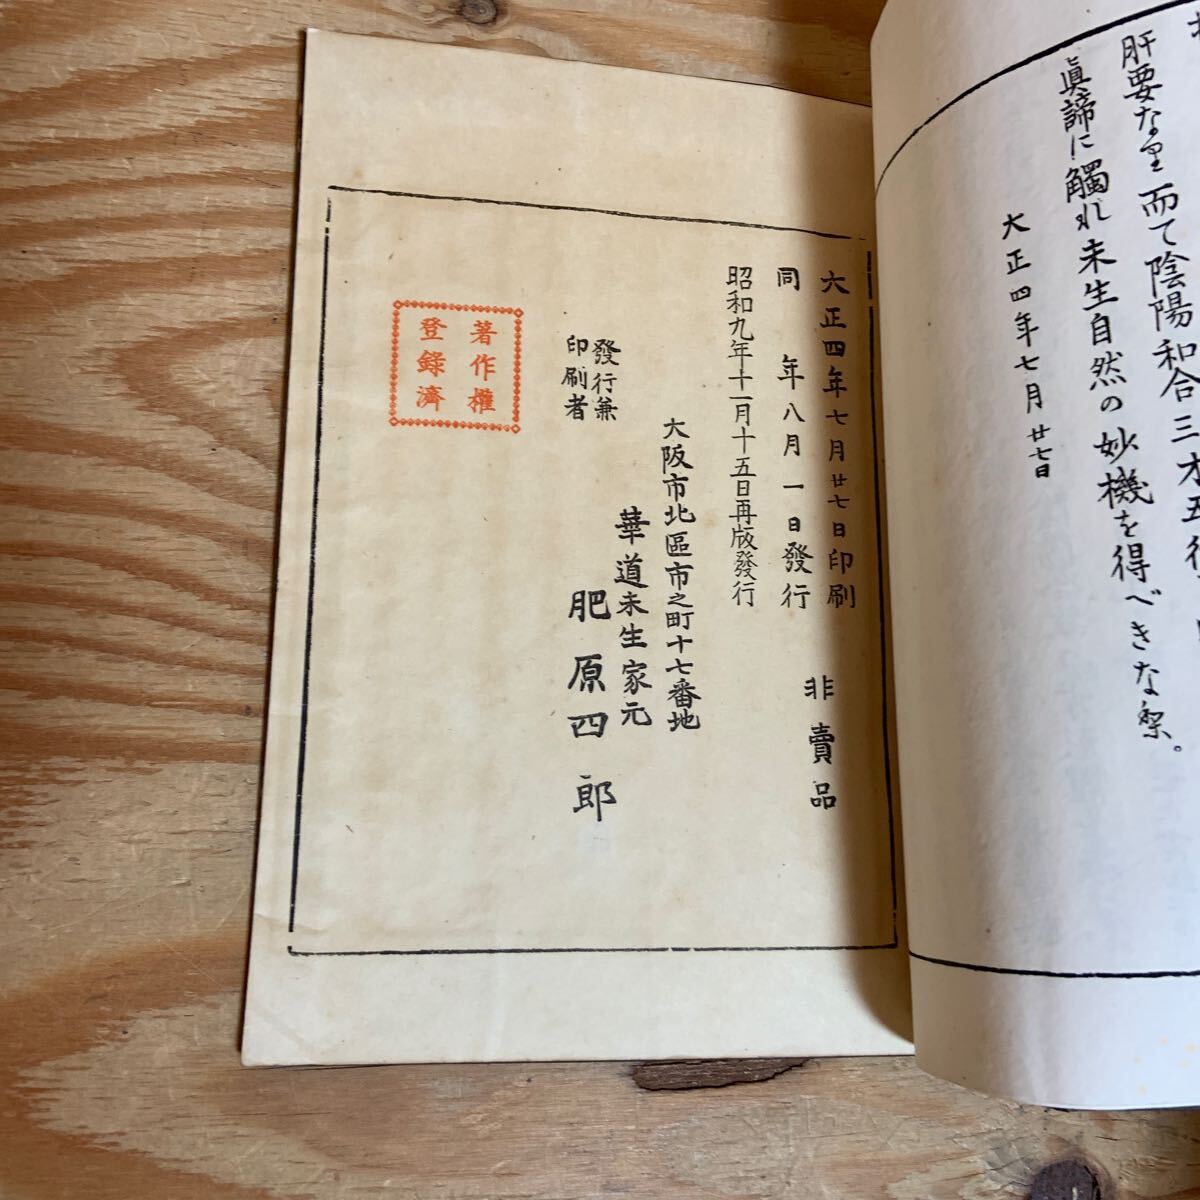 肝要なり而て陰陽和合三才五行
眞諦に觸れ未生自然の妙機を得べきな梨。
大正四年七月廿七日
大正四年七月廿七日印刷
同年八月一日發行
非賣品
昭和九年十一月十五日再版發行
大阪市北區市之町十七番地
華道未生家元
發行兼
印刷者
肥原四郎
著作權
登錄濟